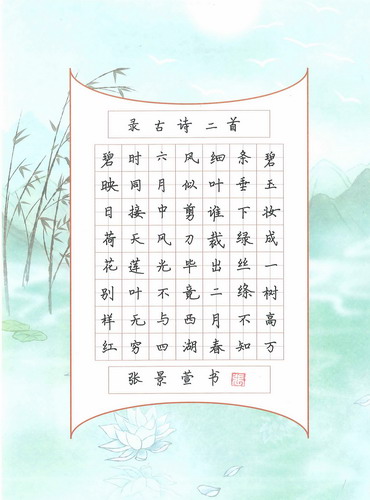 录古诗二首
碧玉妆成一树高万
条垂下绿丝绦不知
细叶谁裁出二月春
风似剪刀毕竟西湖
六月中风光不与四
时同接天莲叶无穷
碧映日荷花别样红
张景萱书